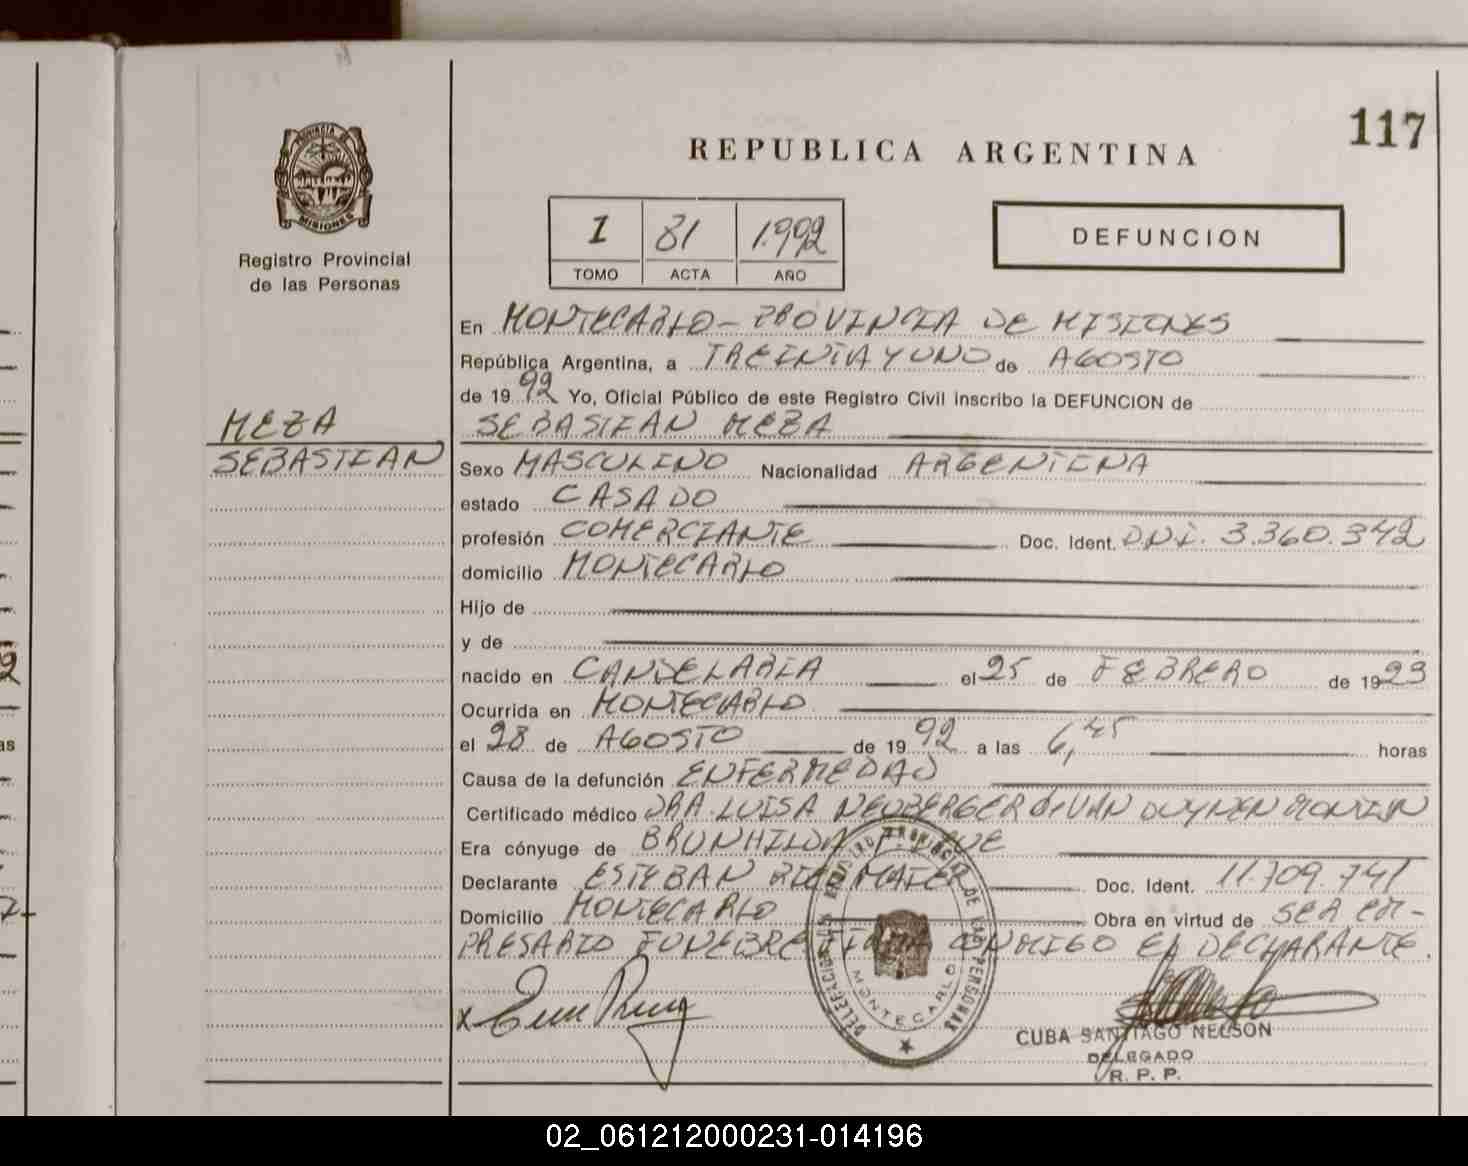 117
REPUBLICA ARGENTINA
PROVINCIA DE
MISIONES
Registro Provincial
de las Personas
1 81 1.992
TOMO ACTA AÑO
DEFUNCION
En MONTECARLO - PROVINCIA DE MISIONES
República Argentina, a TREINTA Y UNO de AGOSTO
de 1992 Yo, Oficial Público de este Registro Civil inscribo la DEFUNCION de
MEZA
SEBASTIAN MEZA
SEBASTIAN
Sexo MASCULINO Nacionalidad ARGENTINA
estado CASADO
profesión COMERCIANTE Doc. Ident. D.N.I. 3.360.342
domicilio MONTECARLO
Hijo de
y de
nacido en CANDELARIA el 25 de FEBRERO de 1923
Ocurrida en MONTECARLO
el 28 de AGOSTO de 1992 a las 6,45 horas
Causa de la defunción ENFERMEDAD
Certificado médico DRA. LUISA NEUBERGER de VAN DUYNEN
Era cónyuge de BRUNHILDA
Declarante ESTEBAN Doc. Ident. 11.709.741
Domicilio MONTECARLO Obra en virtud de SER EM-
PRESARIO FUNEBRE FIRMA CONMIGO EL DECLARANTE.
REGISTRO PROVINCIAL DE LAS PERSONAS
DELEGACION
MONTECARLO
CUBA SANTIAGO NELSON
DELEGADO
R. P. P.
02_061212000231-014196